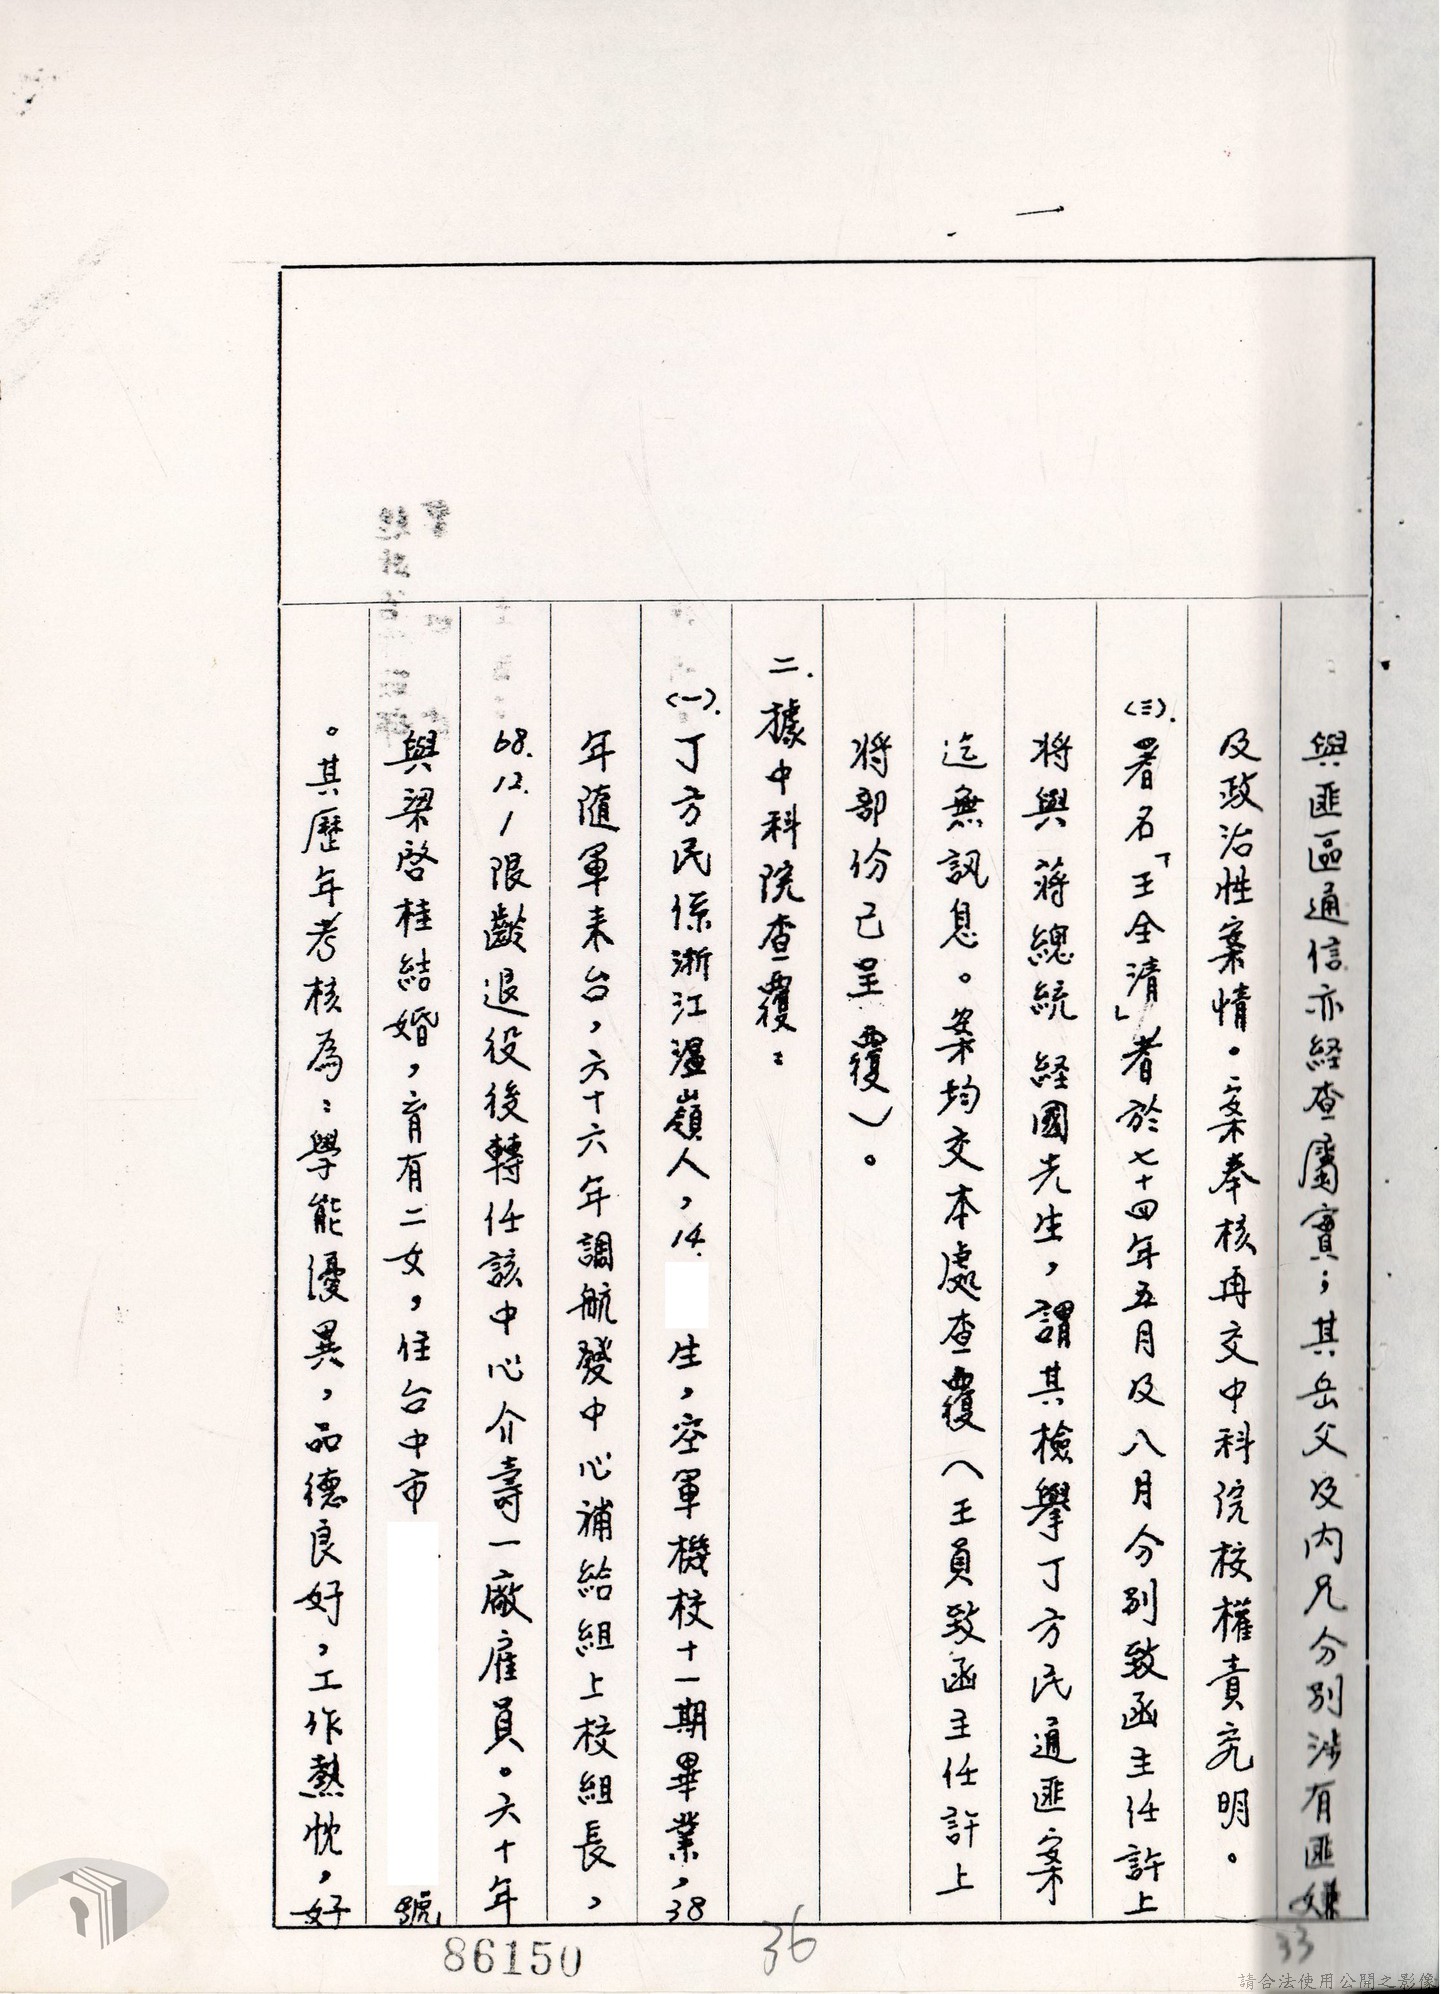 與匪區通信亦經查屬實；其岳父及內兄分別涉有匪嫌
及政治性案情。案奉核再交中科院核權責究明。
(三).署名「王全清」者於七十四年五月及八月分別致函主任許上
將與蔣總統經國先生，謂其檢舉丁方民通匪案
迄無訊息。案均交本處查覆（王員致函主任許上
將部份已呈覆）。
二.據中科院查覆：
(一).丁方民係浙江溫嶺人，14. 生，空軍機校十一期畢業，38
年隨軍來台，六十六年調航發中心補給組上校組長，
68.12.1限齡退役後轉任該中心介壽一廠雇員。六十年
與梁啓桂結婚，育有二女，住台中市 號
。其歷年考核為：學能優異，品德良好，工作熱忱，好
86150
36
33
請合法使用公開之影像